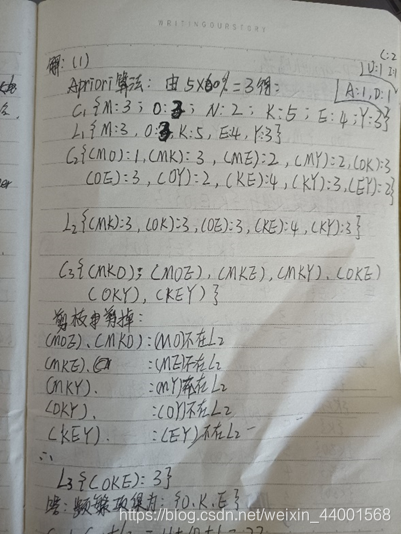 WRITINGOURSTORY
C:2
D:1
A:1, D:1
解: (1)
Apriori算法: 由 5X60%=3得:
C1{M:3; O:3; N:2; K:5; E:4; Y:3}
L1{M:3, O:3, K:5, E:4, Y:3}
C2{(MO):1, (MK):3, (ME):2, (MY):2, (OK):3
(OE):3, (OY):2, (KE):4, (KY):3, (EY):2}
L2{(MK):3, (OK):3, (OE):3, (KE):4, (KY):3}
C3{(MKO); (MOE), (MKE), (MKY), (OKE)
(OKY), (KEY)}
剪枝 剪掉:
(MOE)、(MKO):(MO)不在L2
(MKE). :(ME)不在L2
(MKY). :(MY)不在L2
(OKY). :(OY)不在L2
(KEY). :(EY)不在L2
∴
L3{(OKE):3}
答: 频繁项集为: {O、K、E}
https://blog.csdn.net/weixin_44001568